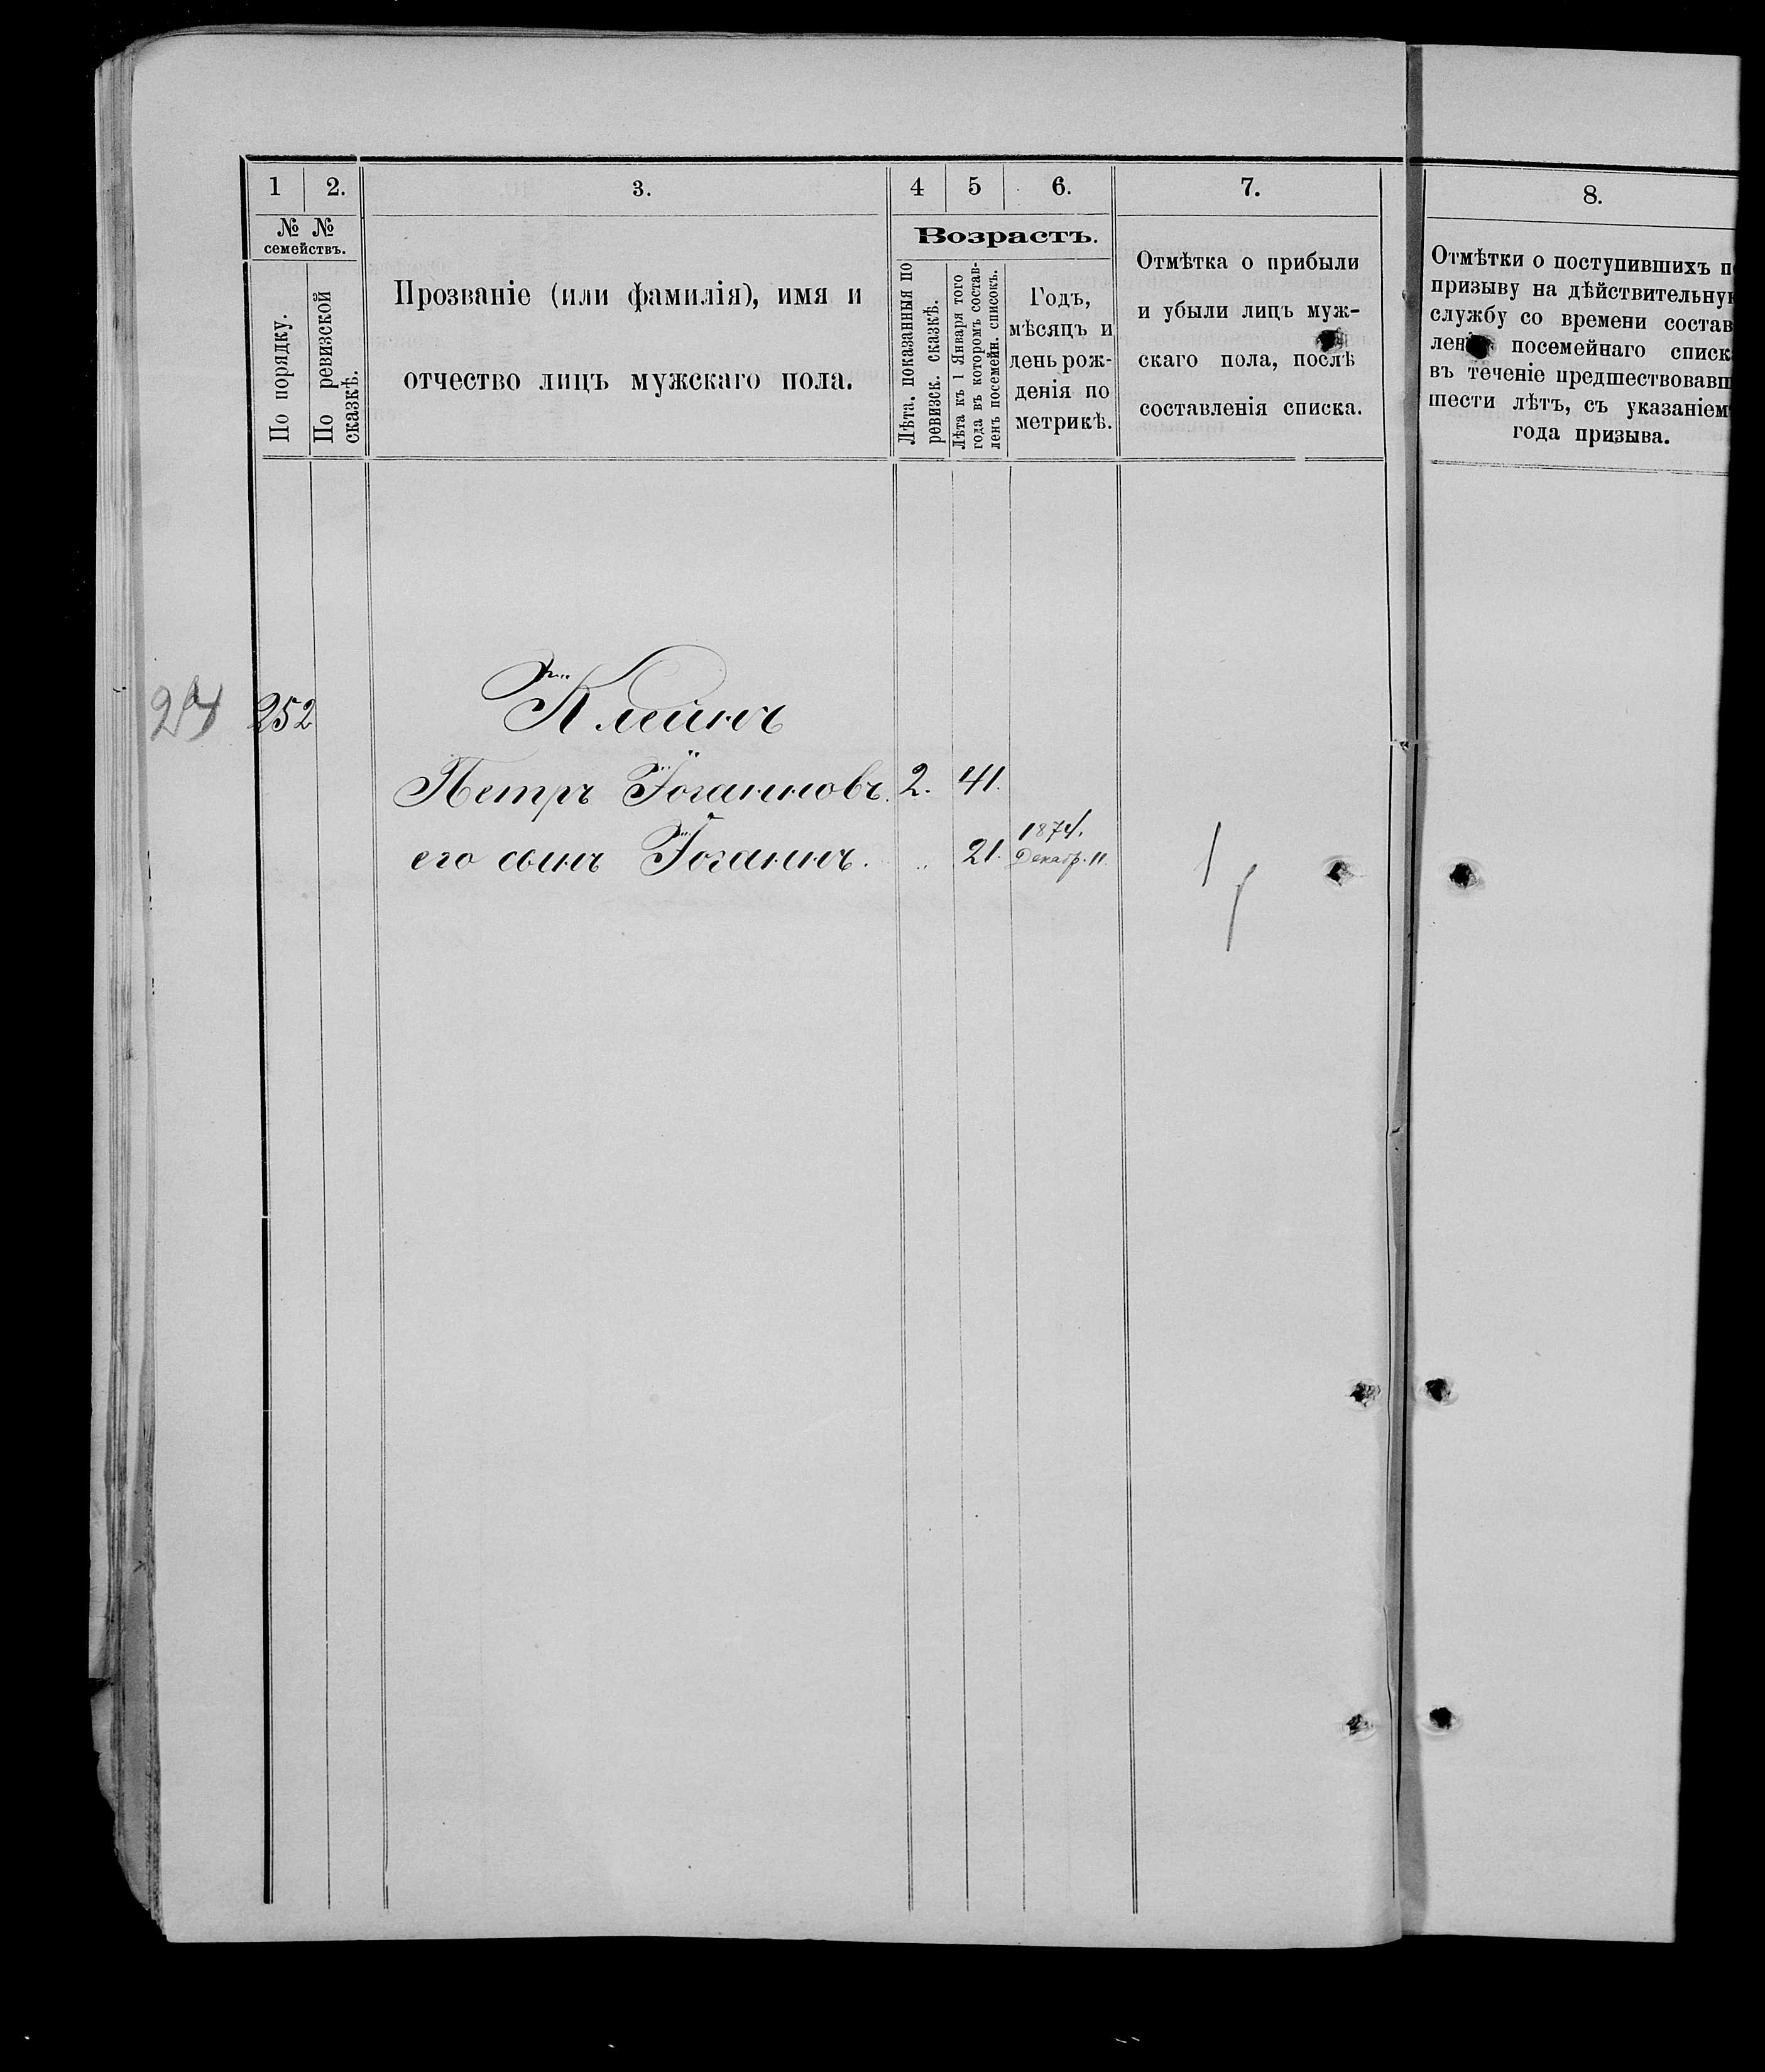 1 2. 3. 4 5 6. 7. 8.
№ № семействъ.
По порядку.
По ревизской сказкѣ.
Прозваніе (или фамилія), имя и
отчество лицъ мужскаго пола.
Возрастъ.
Лѣта, показанныя по
ревизск. сказкѣ.
Лѣта къ 1 Января того
года въ которомъ состав-
ленъ посемейн. списокъ.
Годъ,
мѣсяцъ и
день рож-
денія по
метрикѣ.
Отмѣтка о прибыли
и убыли лицъ муж-
скаго пола, послѣ
составленія списка.
Отмѣтки о поступившихъ п
призыву на дѣйствительную
службу со времени состав
лені посемейнаго списк
въ теченіе предшествовавш
шести лѣтъ, съ указаніем
года призыва.
252 Клейнъ
Петръ Іоганновъ. 2. 41.
его сынъ Іоганнъ. " 21. 1874.
Декабр. 11.